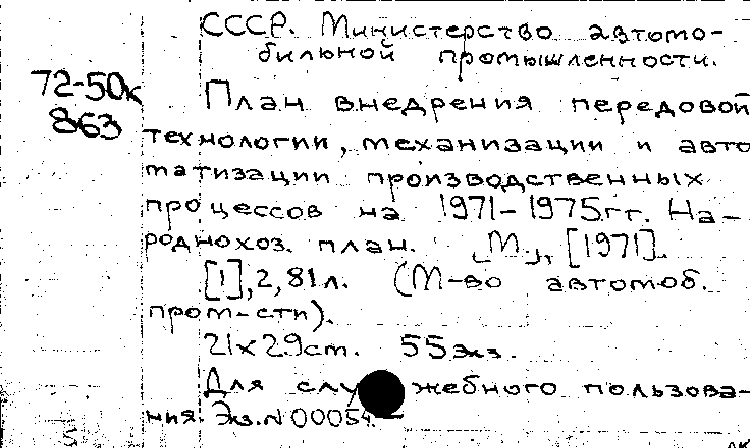 СССР. Министерство автомо-
бильной промышленности.
72-50к
863
План внедрения передовой
технологии, механизации и авто
матизации производственных
процессов на 1971-1975гг. На-
роднохоз. план. [М.], [1971].
[1], 2, 81 л. (М-во автомоб.
пром-сти).
21х29см. 55экз.
Для служебного пользова-
ния. Экз. N 00054.